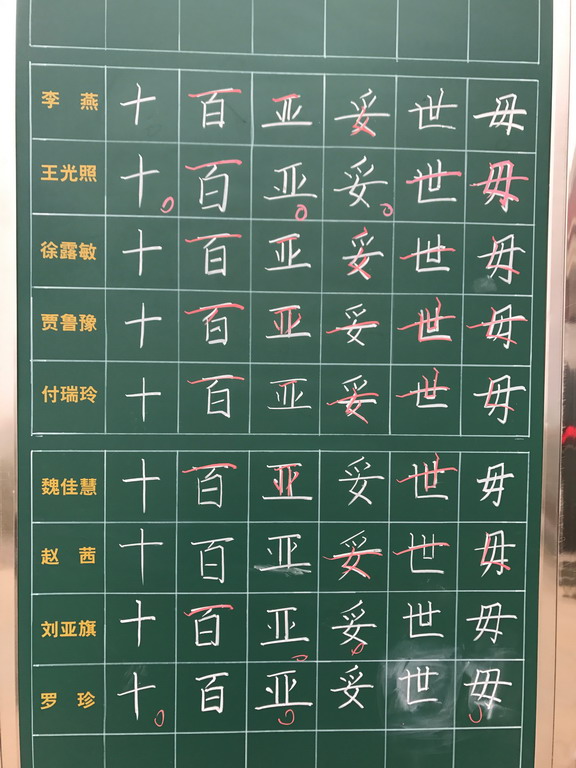 李 燕 十 百 亚 妥 世 毋
王光照 十 百 亚 妥 世 毋
徐露敏 十 百 亚 妥 世 毋
贾鲁豫 十 百 亚 妥 世 毋
付瑞玲 十 百 亚 妥 世 毋
魏佳慧 十 百 亚 妥 世 毋
赵 茜 十 百 亚 妥 世 毋
刘亚旗 十 百 亚 妥 世 毋
罗 珍 十 百 亚 妥 世 毋